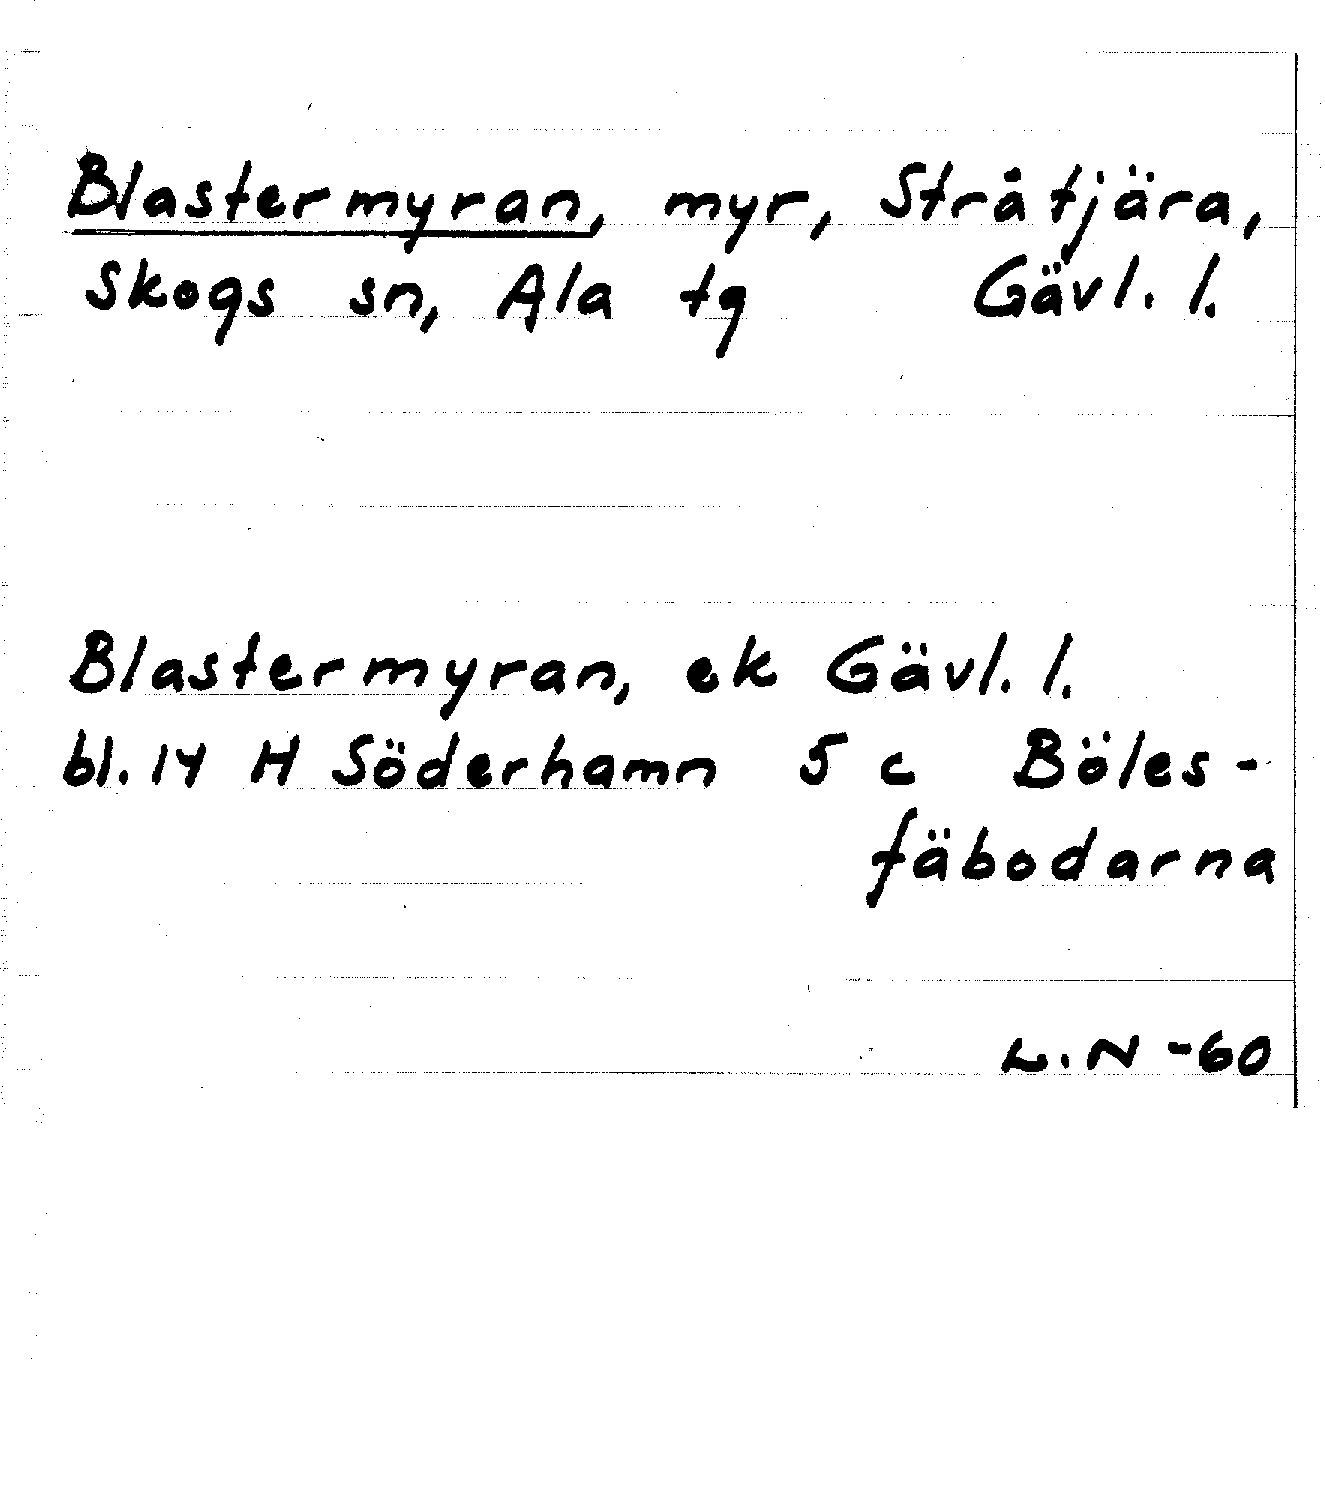 Blastermyran, myr, Stråtjära,
Skogs sn, Ala tg Gävl. l.
Blastermyran, ek Gävl. l.
bl. 14 H Söderhamn 5 c Böles-
fäbodarna
L. N -60